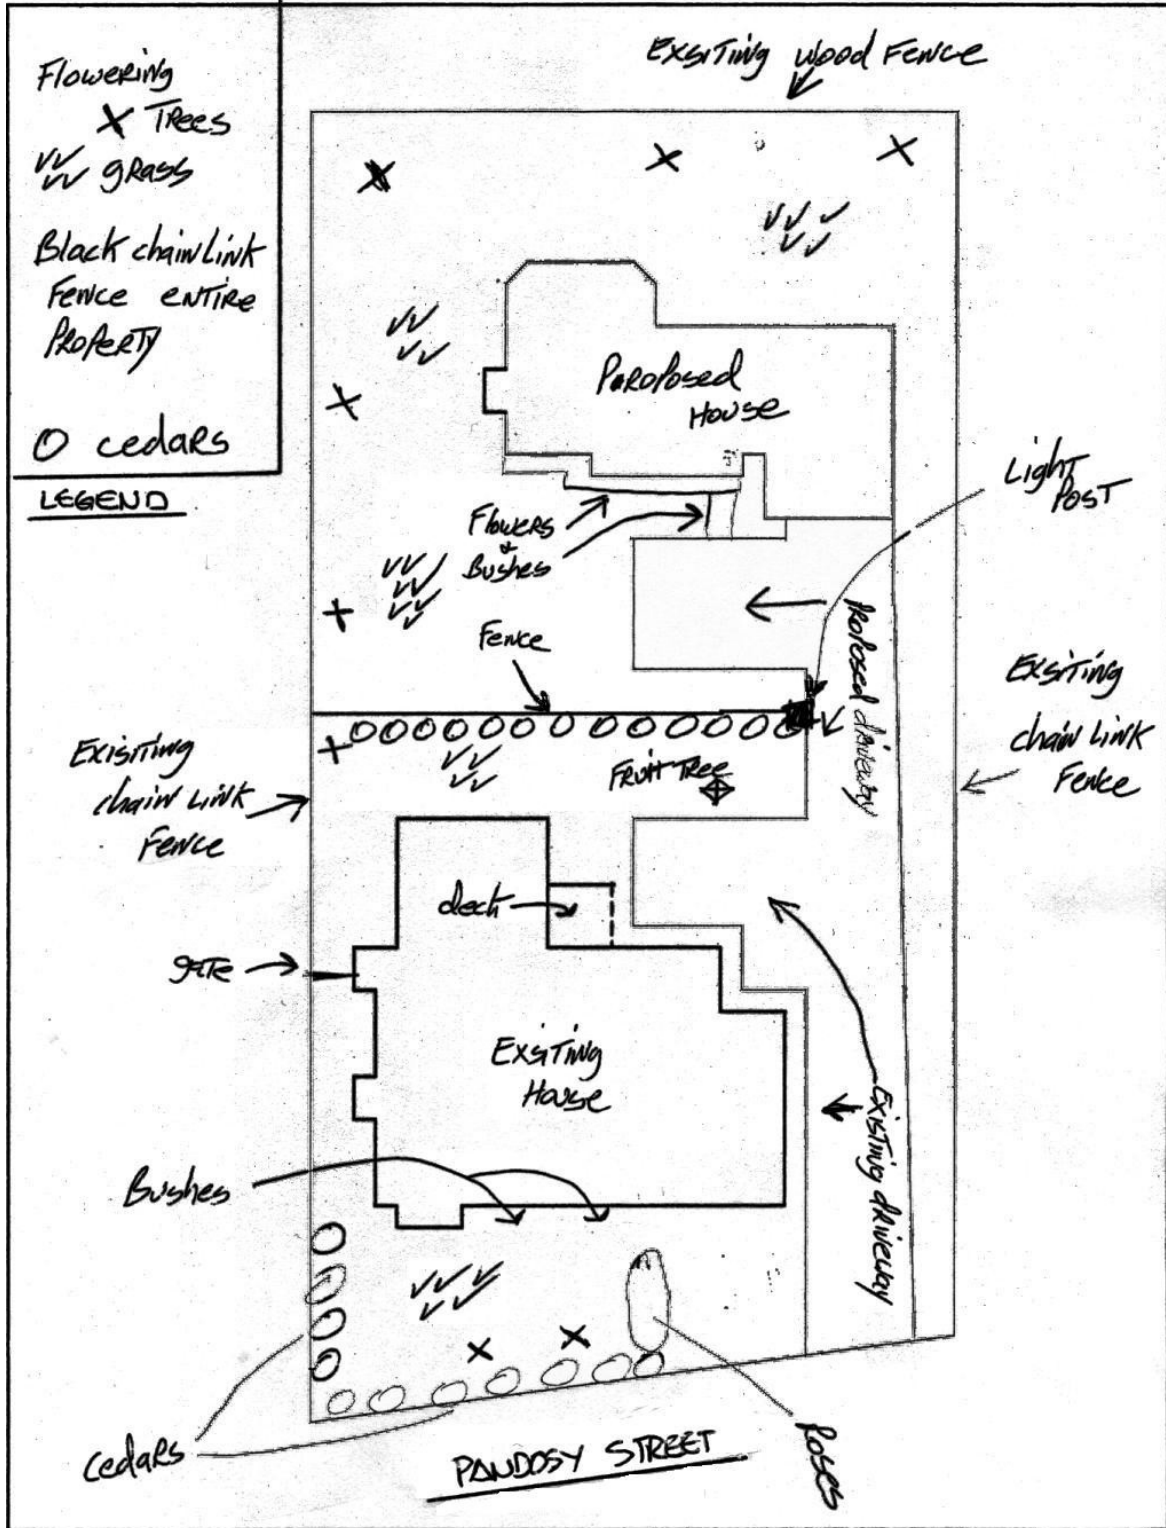 Flowering
X Trees
grass
Black chain link
Fence entire
Property
O cedars
LEGEND
Exsiting wood Fence
Poroposed
House
Light
Post
Flowers
&
Bushes
Proposed driveway
Fence
Exsiting
chain link
Fence
Exisiting
chain link
Fence
Fruit Tree
deck
gate
Exsiting
House
Existing driveway
Bushes
Cedars
Roses
PANDOSY STREET